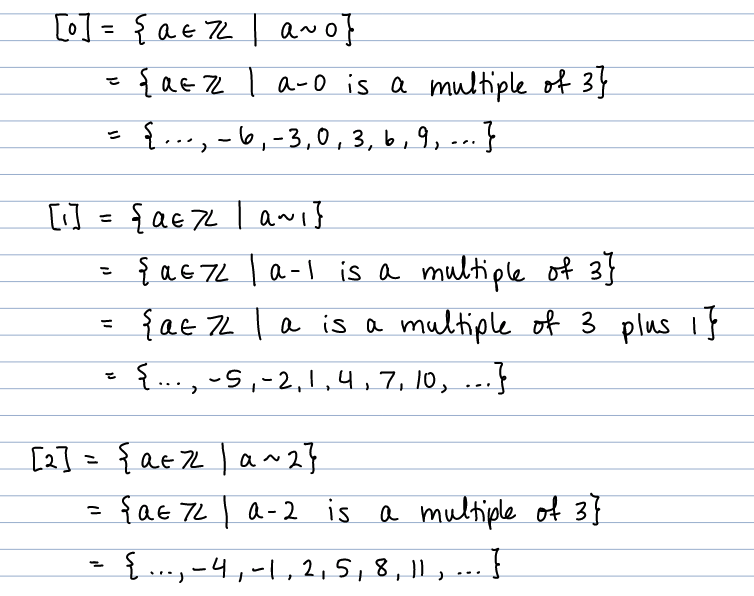 [0] = {a ∈ ℤ | a ~ 0}
= {a ∈ ℤ | a - 0 is a multiple of 3}
= {..., -6, -3, 0, 3, 6, 9, ...}
[1] = {a ∈ ℤ | a ~ 1}
= {a ∈ ℤ | a - 1 is a multiple of 3}
= {a ∈ ℤ | a is a multiple of 3 plus 1}
= {..., -5, -2, 1, 4, 7, 10, ...}
[2] = {a ∈ ℤ | a ~ 2}
= {a ∈ ℤ | a - 2 is a multiple of 3}
= {..., -4, -1, 2, 5, 8, 11, ...}